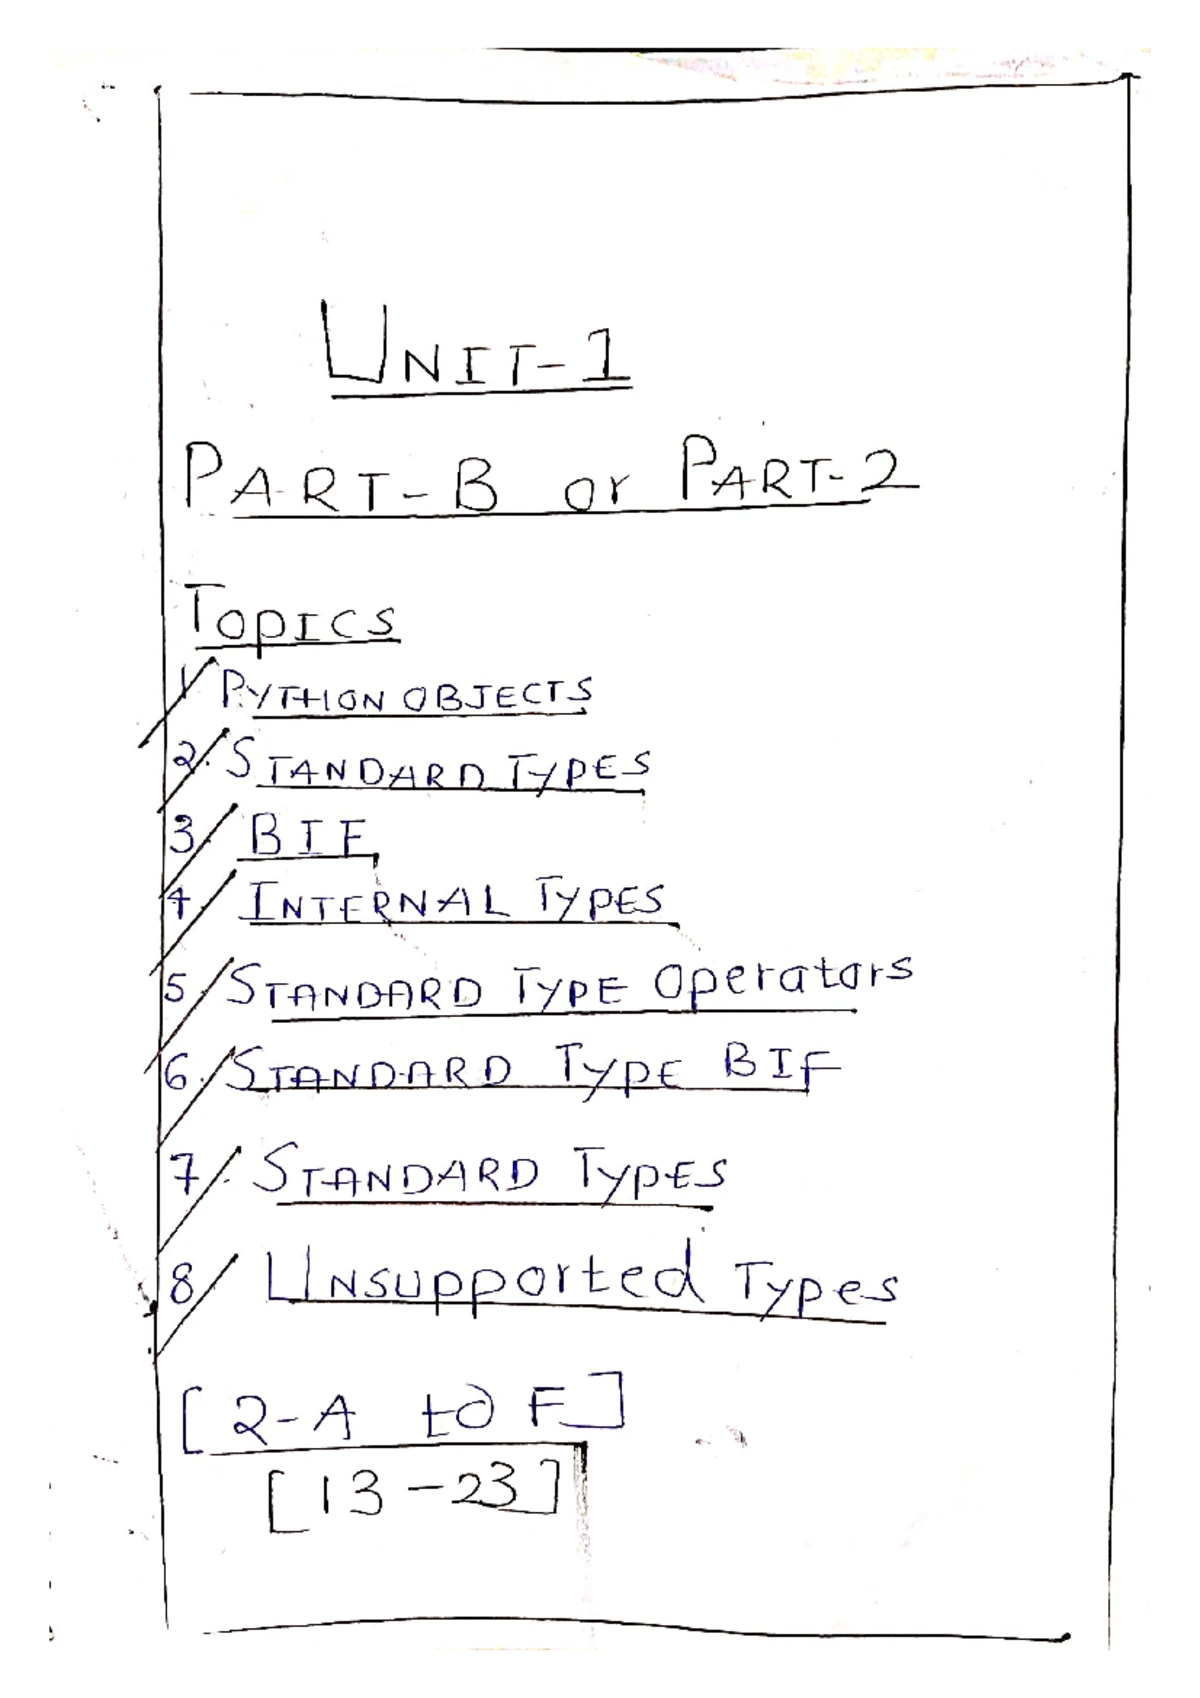 UNIT-1
PART-B or PART-2
TOPICS
1. PYTHON OBJECTS
2. STANDARD TYPES
3. BIF
4. INTERNAL TYPES
5. STANDARD TYPE Operators
6. STANDARD TYPE BIF
7. STANDARD TYPES
8. UNSUpported Types
[2-A to F]
[13-23]